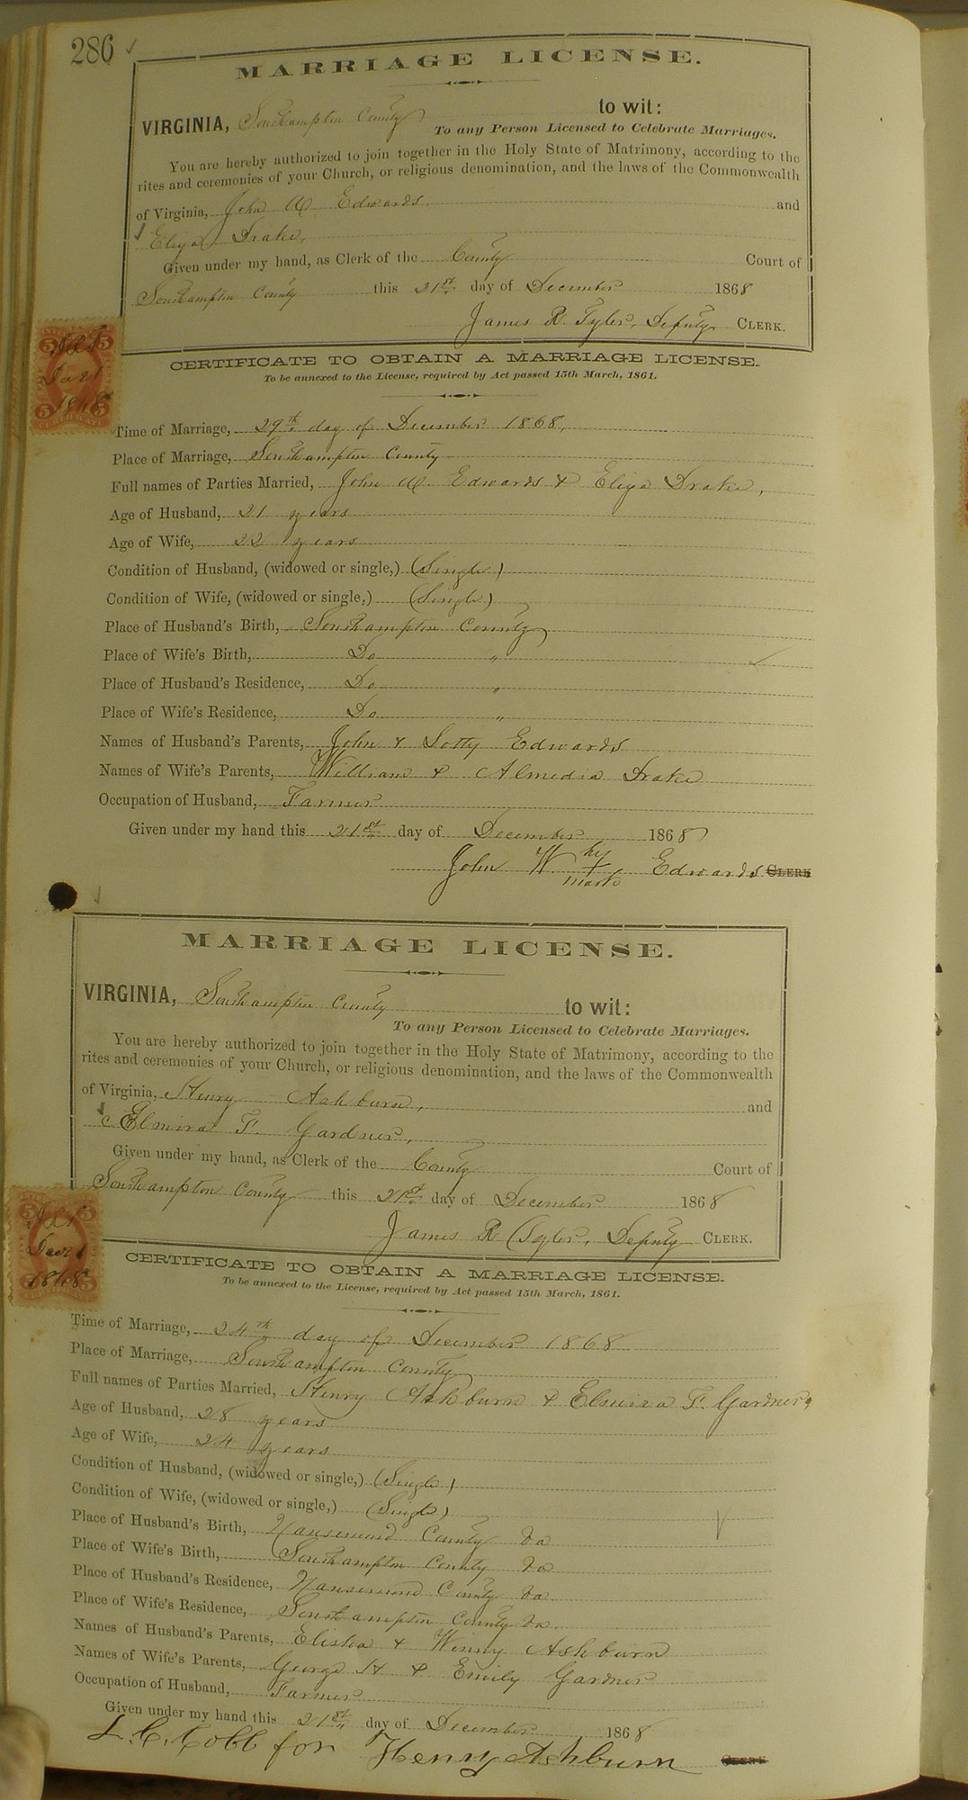 286
MARRIAGE LICENSE.
VIRGINIA, Southampton County to wit:
To any Person Licensed to Celebrate Marriages.
You are hereby authorized to join together in the Holy State of Matrimony, according to the
rites and ceremonies of your Church, or religious denomination, and the laws of the Commonwealth
of Virginia, John W Edwards and
Eliza Drake,
Given under my hand, as Clerk of the County Court of
Southampton County this 21st day of December 1868
James R. Tyler, Deputy CLERK.
CERTIFICATE TO OBTAIN A MARRIAGE LICENSE.
To be annexed to the License, required by Act passed 15th March, 1861.
Time of Marriage, 29th day of December 1868,
Place of Marriage, Southampton County
Full names of Parties Married, John W. Edwards & Eliza Drake,
Age of Husband, 21 years
Age of Wife, 22 years
Condition of Husband, (widowed or single,) (Single)
Condition of Wife, (widowed or single,) (Single)
Place of Husband's Birth, Southampton County
Place of Wife's Birth, Do "
Place of Husband's Residence, Do "
Place of Wife's Residence, Do "
Names of Husband's Parents, John & Edwards
Names of Wife's Parents, William & Almedia Drake
Occupation of Husband, Farmer
Given under my hand this 21st day of December 1868
John W his + mark Edwards CLERK
MARRIAGE LICENSE.
VIRGINIA, Southampton County to wit:
To any Person Licensed to Celebrate Marriages.
You are hereby authorized to join together in the Holy State of Matrimony, according to the
rites and ceremonies of your Church, or religious denomination, and the laws of the Commonwealth
of Virginia, Henry Ashburn, and
Elmira F. Gardner,
Given under my hand, as Clerk of the County Court of
Southampton County this 21st day of December 1868
James R Tyler, Deputy CLERK.
CERTIFICATE TO OBTAIN A MARRIAGE LICENSE.
To be annexed to the License, required by Act passed 15th March, 1861.
Time of Marriage, 24th day of December 1868
Place of Marriage, Southampton County
Full names of Parties Married, Henry Ashburn & Elmira F. Gardner,
Age of Husband, 28 years
Age of Wife, 24 years
Condition of Husband, (widowed or single,) (Single)
Condition of Wife, (widowed or single,) (Single)
Place of Husband's Birth, Nansemond County Va
Place of Wife's Birth, Southampton County Va
Place of Husband's Residence, Nansemond County Va
Place of Wife's Residence, Southampton County Va
Names of Husband's Parents, Elisha & Winny Ashburn
Names of Wife's Parents, George H & Emily Gardner
Occupation of Husband, Farmer
Given under my hand this 21st day of December 1868
L. C. Cobb for Henry Ashburn CLERK